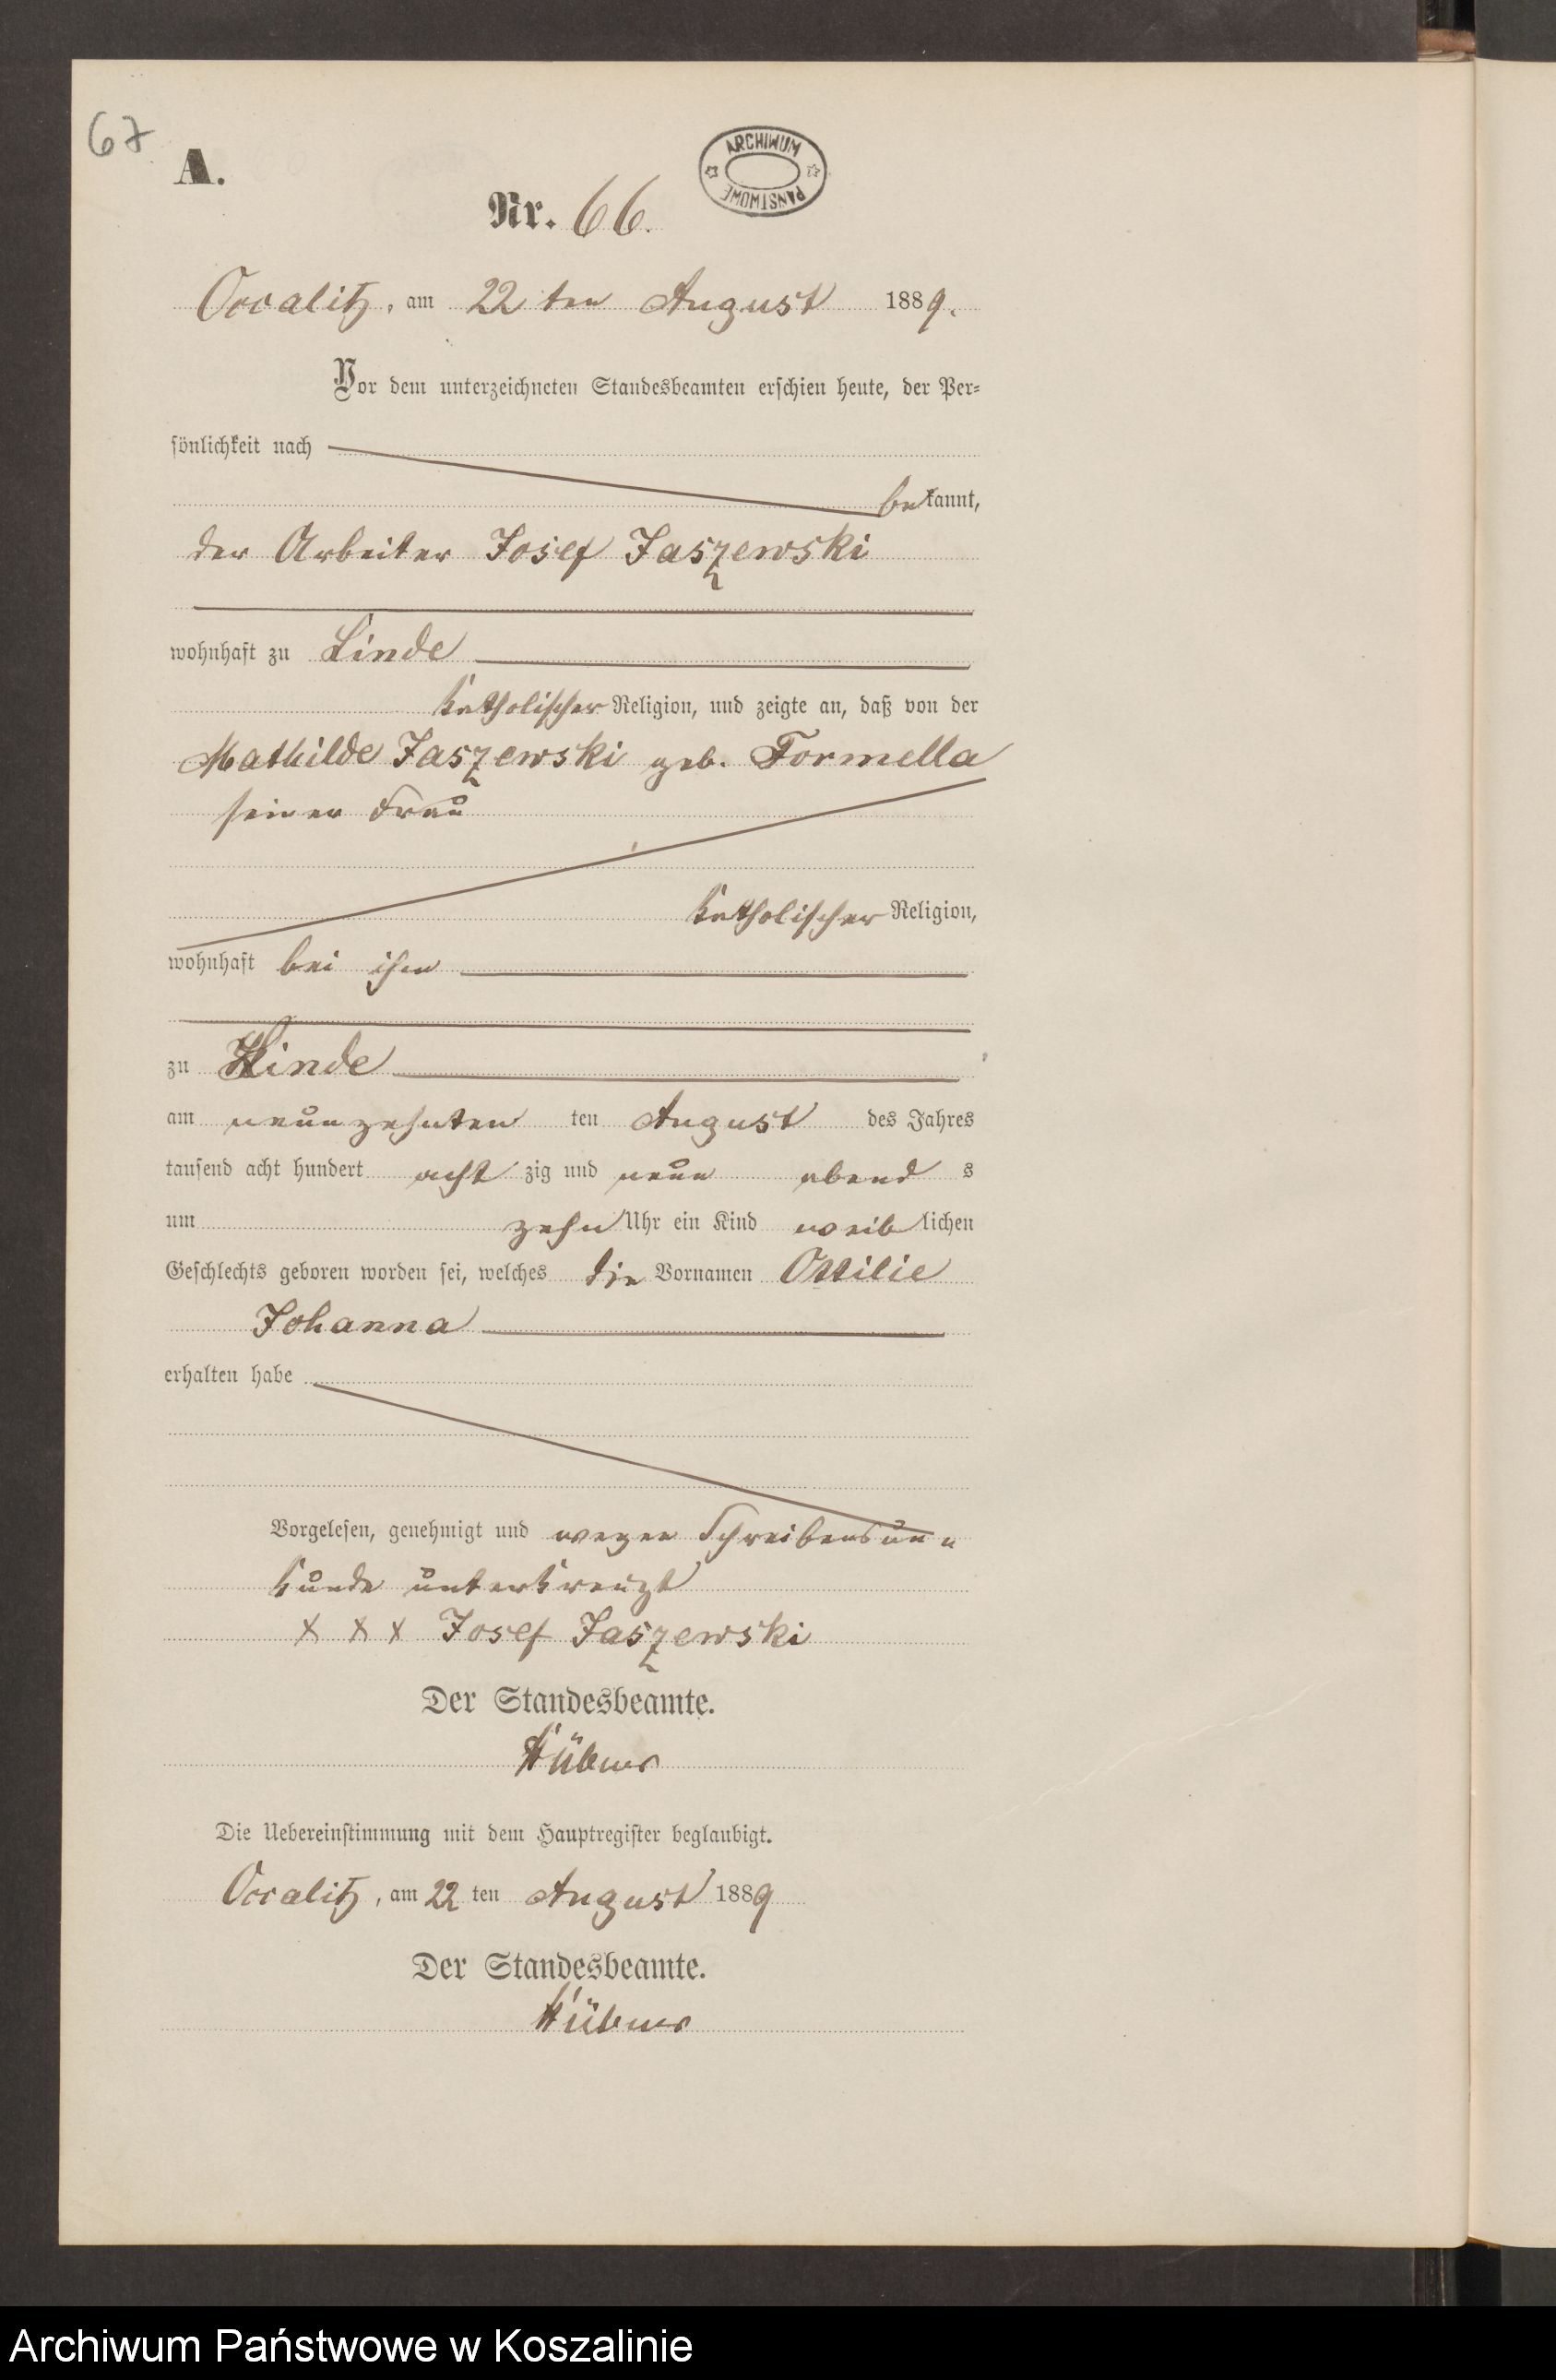 67
A.
ARCHIWUM PAŃSTWOWE
Nr. 66.
Occalitz, am 22 ten August 1889.
Vor dem unterzeichneten Standesbeamten erschien heute, der Per-
sönlichkeit nach
bekannt,
der Arbeiter Josef Jaszewski
wohnhaft zu Linde
katholischer Religion, und zeigte an, daß von der
Mathilde Jaszewski geb. Formella
seiner Frau
katholischer Religion,
wohnhaft bei ihm
zu Linde
am neunzehnten ten August des Jahres
tausend acht hundert acht zig und neun abend s
um zehn Uhr ein Kind weib lichen
Geschlechts geboren worden sei, welches die Vornamen Ottilie
Johanna
erhalten habe
Vorgelesen, genehmigt und wegen Schreibensun
kunde unterkreuzt
x x x Josef Jaszewski
Der Standesbeamte.
Die Uebereinstimmung mit dem Hauptregister beglaubigt.
Occalitz, am 22 ten August 1889
Der Standesbeamte.
Archiwum Państwowe w Koszalinie